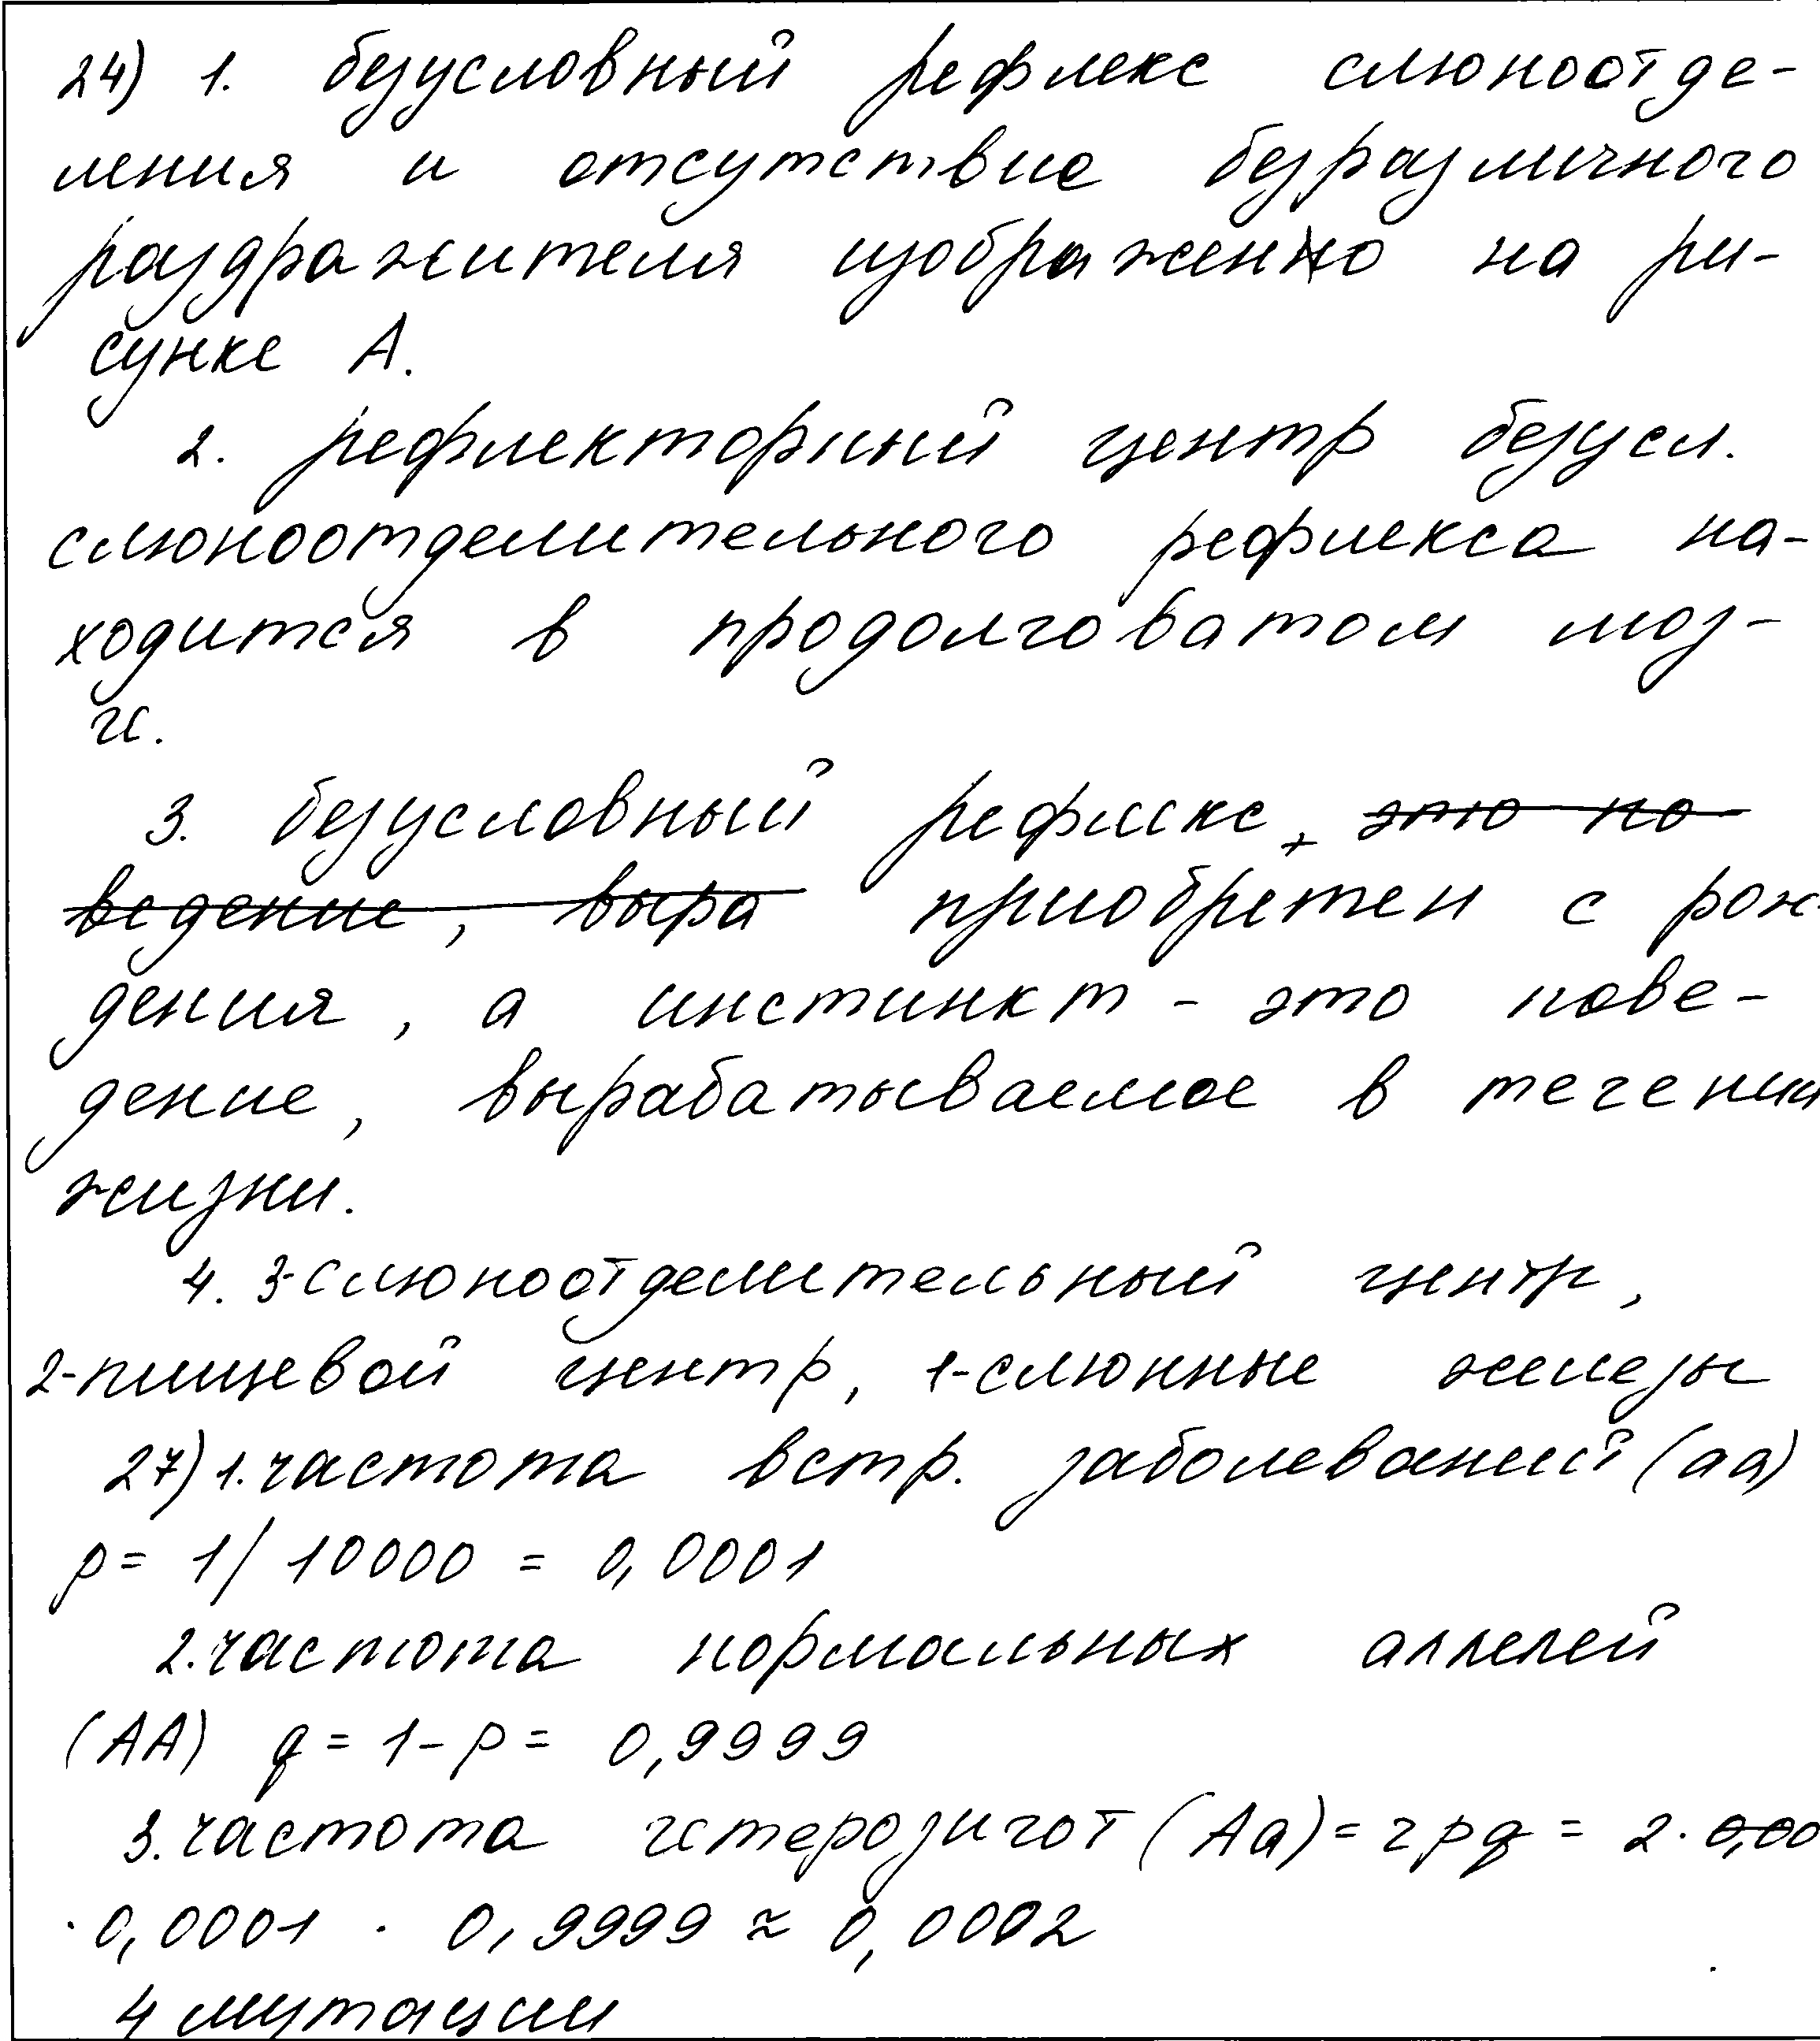 24) 1. безусловный рефлекс слюноотде-
ления и отсутствие безразличного
раздражителя изображенно на ри-
сунке А.
2. рефлекторный центр безусл.
слюноотделительного рефлекса на-
ходится в продолговатом моз-
ге.
3. безусловный рефлекс, это по-
ведение, выра приобретен с рож-
дения, а инстинкт - это пове-
дение, вырабатываемое в течении
жизни.
4. 3-слюноотделительный центр,
2-пищевой центр, 1-слюнные железы
27) 1. частота встр. заболеваний (аа)
p = 1/10000 = 0,0001
2. частота нормальных аллелей
(АА) q = 1 - p = 0,9999
3. частота гетерозигот (Аа) = 2pq = 2 · 0,00
· 0,0001 · 0,9999 ≈ 0,0002
4 мутации